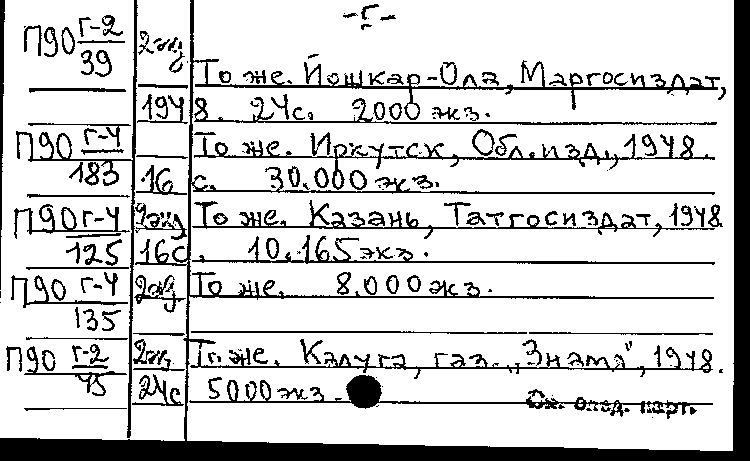 -5-
П90 Г-2/39 2экз То же. Йошкар-Ола, Маргосиздат,
1948. 24с. 2000 экз.
П90 Г-4/183 То же. Иркутск, Обл.изд., 1948.
16 с. 30.000 экз.
П90 Г-4/125 2экз То же. Казань, Татгосиздат, 1948
16с. 10.165 экз.
П90 Г-4/135 2экз То же. 8.000 экз.
П90 Г-2/45 2экз То же. Калуга, газ. „Знамя", 1948.
24с 5000 экз.
См. след. карт.